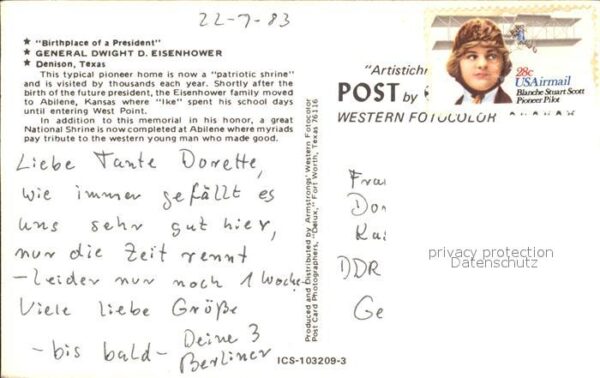 22-7-83
★ "Birthplace of a President"
★ GENERAL DWIGHT D. EISENHOWER
★ Denison, Texas
This typical pioneer home is now a "patriotic shrine"
and is visited by thousands each year. Shortly after the
birth of the future president, the Eisenhower family moved
to Abilene, Kansas where "Ike" spent his school days
until entering West Point.
In addition to this memorial in his honor, a great
National Shrine is now completed at Abilene where myriads
pay tribute to the western young man who made good.
Liebe Tante Dorette,
wie immer gefällt es
uns sehr gut hier,
nur die Zeit rennt
- leider nur noch 1 Woche.
Viele liebe Größe
- bis bald - Deine 3
Berliner
Produced and Distributed by Armstrongs' Western Fotocolor
Post Card Photographers, "Delux," Fort Worth, Texas 76116
ICS-103209-3
"Artistichr
POST by
WESTERN FOTOCOLOR
28c
USAirmail
Blanche Stuart Scott
Pioneer Pilot
Frau
Dor
Ka
DDR
Ge
privacy protection
Datenschutz